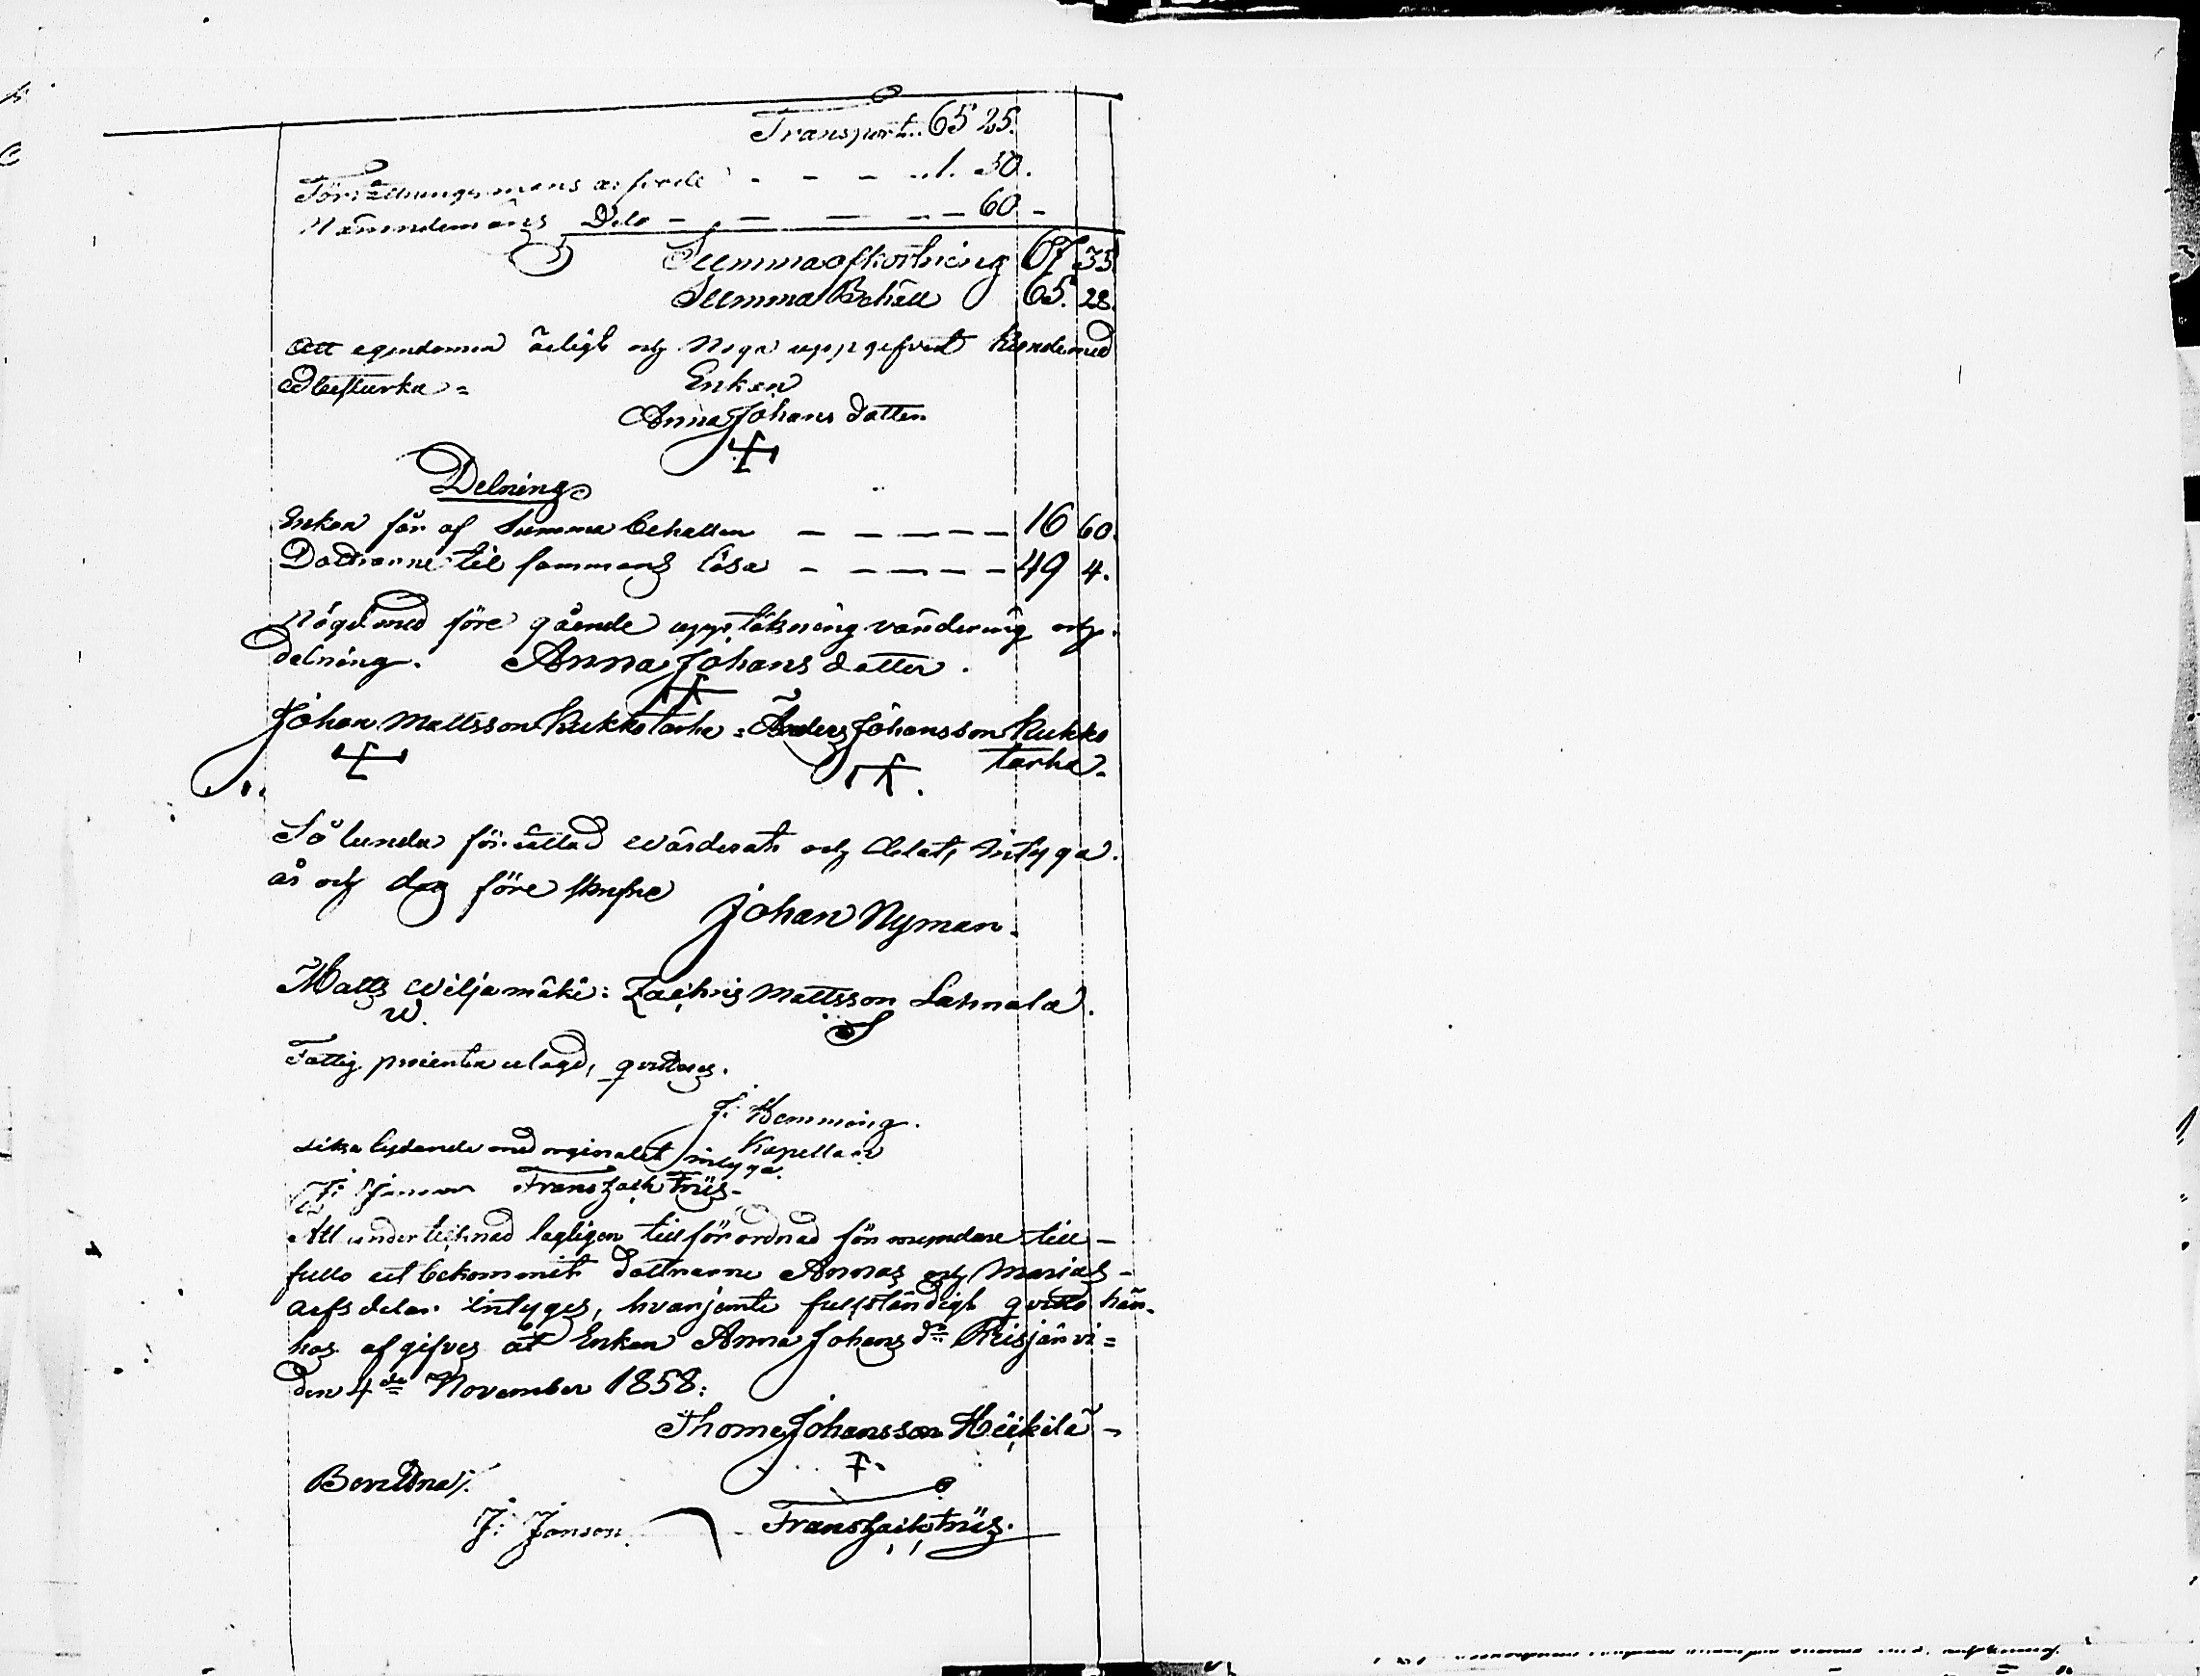 Transport.. 65 25.
Förrättningsmans arfvode - - - .. 1. 50.
Nämndemans Dito - - - - - 60 -
Summa afkortning 67 35
Summa Behåll 65. 28.
Att egendomen ärligt och noga uppgifvit kan med
ed bestyrka = Enkan
Anna Johans datter
Delning
Enkan får af Summa behallen - - - - - 16 60.
Dottrarne til sammans lösa - - - - - 49 4.
Nögd med före gående uppteckning värdering och
delning. Anna Johans datter.
Johan Mattsson Kukkotarha = Anders Johansson Kukko
tarha.
Så lunda förrättad wärderat och delat, intyga.
år och dag före skrefne
Johan Nyman.
Matts Wiljamäki: Zachris Mattsson Lahnala.
W. S
Fattig procenten erlagd, qvitteras.
J. Hemming.
Kapellan
Lika lydande med orginalet intyga.
J: Janson Frans Zach Friis.
Att undertecknad lagligen tillförordnad förmyndare till-
fullo utbekommit dottrarne Annas och Marias
arfs delar intygas, hvarjemte fullständigt qvitto här-
hos afgifves åt Enkan Anna Johans dr Reisjärvi =
den 4de November 1858:
Thome Johansson Heikilä -
Bevittna/.
J: Janson Frans Zach Friis.